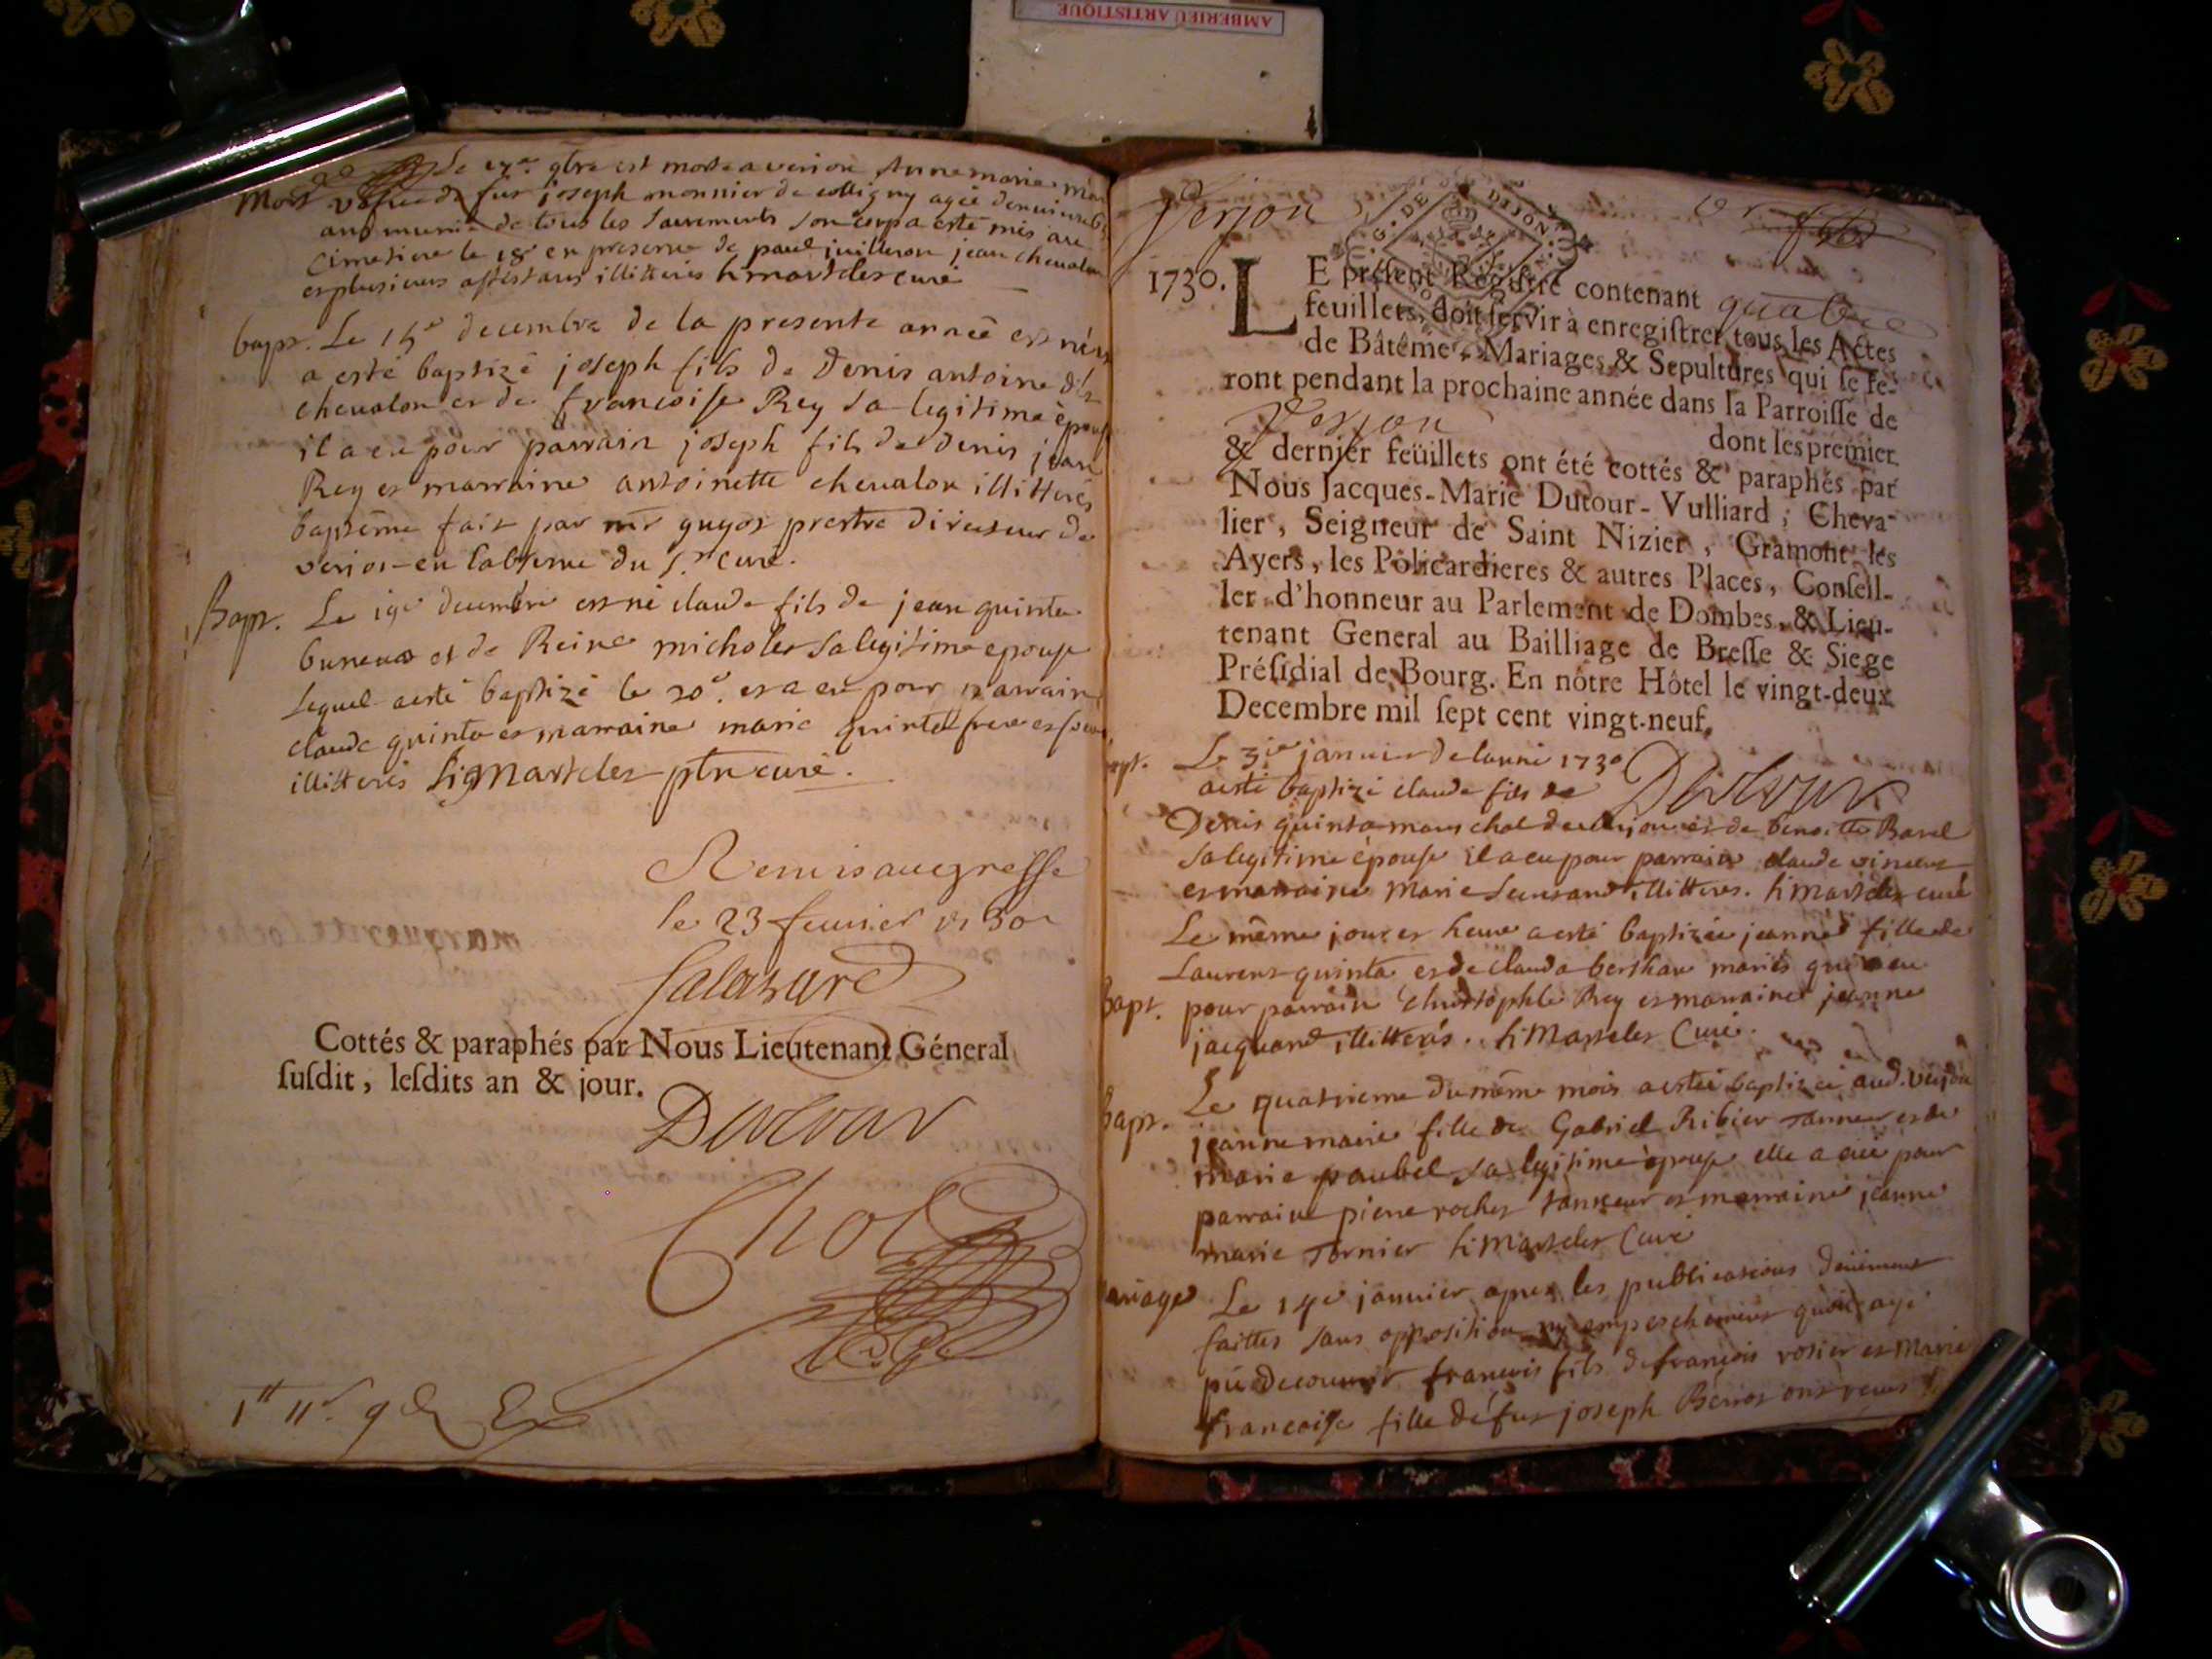 AMBERIEU ARTISTIQUE
Mort de 17e 9bre est morte a verion Anne marie
vefve de fut joseph monnier de colligny agée
ans munie de tous les sacrements son corp a esté mis au
cimetiere le 18e en presence de paul juilleron jean chevalon
et plusieurs assistans illitterés curé
bapt. Le 15e decembre de la presente année est né et
a esté baptizé joseph fils de denis antoine
chevalon et de francoise Rey sa legitime epouse
il a eu pour parrain joseph fils de denis jean
Rey et marraine antoinette chevalon illitterés
baptême fait par mr guyot prestre directeur de
verion en labsence du sr curé.
Bapt. Le 19e decembre est né claude fils de jean quinta
et de Reine micholet sa legitime epouse
lequel a esté baptizé le 20e. et a eu pour parrain
claude quinta et marraine marie quinta frere et soeur
illitterés ptre curé.
Remis au greffe
le 23 fevrier 1730
Cottés & paraphés par Nous Lieutenant Géneral
susdit, lesdits an & jour.
Dutour
Chol
Verjon
G. DE DIJON
1730. LE présent Registre contenant quatre
feuillets, doit servir à enregistrer tous les Actes
de Bâtême, Mariages, & Sepultures qui se fe-
ront pendant la prochaine année dans la Parroisse de
Verjon dont les premier
& dernier feüillets ont été cottés & paraphés par
Nous Jacques-Marie Dutour-Vulliard, Cheva-
lier, Seigneur de Saint Nizier, Gramont, les
Ayers, les Policardieres & autres Places, Conseil-
ler d'honneur au Parlement de Dombes, & Lieu-
tenant General au Bailliage de Bresse & Siege
Présidial de Bourg. En nôtre Hôtel le vingt-deux
Decembre mil sept cent vingt-neuf.
Le 3ie janvier de lanné 1730
a esté baptizé claude fils de
Dutour
Denis quinta mareschal de verjon et de benoitte Borel
sa legitime épouse il a eu pour parrain claude vincent
et marraine marie illitteres. curé
Le même jour et heure a esté baptizée jeanne fille de
Laurent quinta et de clauda berthau mariés qui a eu
bapt. pour parrain christophle Rey et marraine jeanne
jacquand illitterés. Curé.
bapt. Le quatrieme du même mois a estéé baptizéé aud. verjon
jeanne marie fille de Gabriel Ribier tanneur et de
marie paubel sa legitime epouse elle a eüe pour
parrain pierre rochet tanneur et marraine jeanne
marie tornier Curé
Le 14e janvier apres les publications deüement
faittes sans opposition ny empeschement quon aye
pú decouvrir francois fils de françois rosier et Marie
francoise fille de fut joseph ont receus